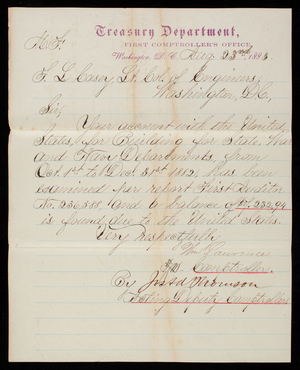 Treasury Department,
FIRST COMPTROLLER'S OFFICE,
Washington, D. C., Aug. 23rd, 1883.
T. L. Casey, Lt. Col. of Engineers,
Washington, D.C.,
Sir,
Your account with the United
States, for Building for State, War
and Navy Departments, from
Oct. 1st to Dec. 31st 1882, has been
examined per report First Auditor
No. 236.588 and a balance of
is found due to the United States.
Very respectfully
Wm Lawrence
Comptroller.
By
Acting Deputy Comptroller